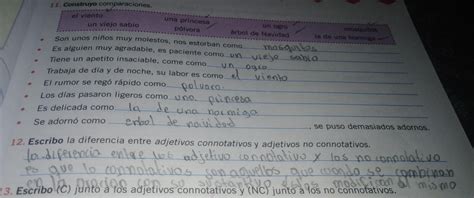 11. Construyo comparaciones.
el viento una princesa un ogro mosquitos
un viejo sabio pólvora árbol de Navidad la de una hormiga
Son unos niños muy molestos, nos estorban como mosquitos
Es alguien muy agradable, es paciente como un viejo sabio
Tiene un apetito insaciable, come como un ogro
Trabaja de día y de noche, su labor es como el viento
El rumor se regó rápido como polvora
Los días pasaron ligeros como una princesa
Es delicada como la de una hormiga
Se adornó como arbol de navidad, se puso demasiados adornos.
12. Escribo la diferencia entre adjetivos connotativos y adjetivos no connotativos.
la diferencia entre los adjetivo connotativo y los no connotativo
es que lo connotativos son aquellos que cuando se combinan
en la oracion con su sustantivo estos modifican al mismo
13. Escribo (C) junto a los adjetivos connotativos y (NC) junto a los no connotativos.